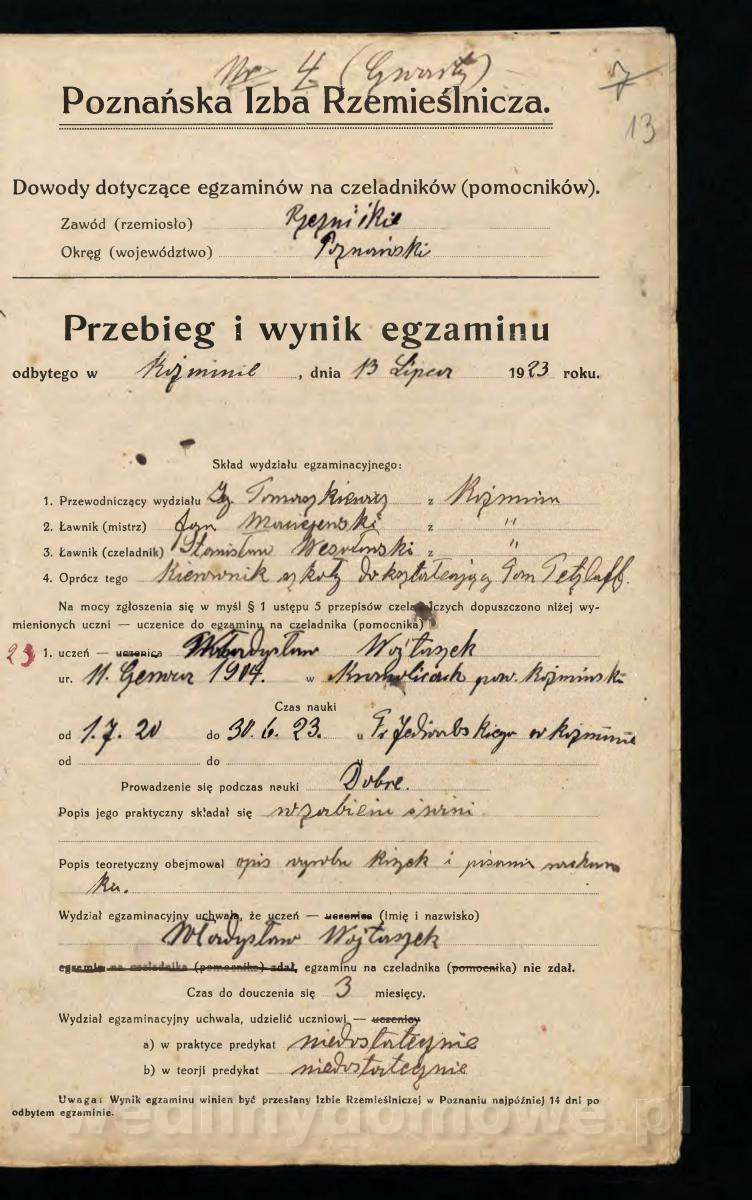 Nr 4 (Czwarty)
7
13
Poznańska Izba Rzemieślnicza.
Dowody dotyczące egzaminów na czeladników (pomocników).
Zawód (rzemiosło) Rzeźnickie
Okręg (województwo) Poznański
Przebieg i wynik egzaminu
odbytego w Koźminie, dnia 13 Lipca 1923 roku.
Skład wydziału egzaminacyjnego:
1. Przewodniczący wydziału Ig. Tomaszkiewicz z Koźmina
2. Ławnik (mistrz) Jan Maciejewski z "
3. Ławnik (czeladnik) Stanisław Wesołowski z "
4. Oprócz tego Kierownik szkoły dokształcającej Pan Tetzlaff.
Na mocy zgłoszenia się w myśl § 1 ustępu 5 przepisów czeladniczych dopuszczono niżej wy-
mienionych uczni — uczenice do egzaminu na czeladnika (pomocnika)
23 1. uczeń — uczenica Władysław Wojtaszek
ur. 11. Czerwca 1904. w pow. Koźmiński
Czas nauki
od 1.7. 20 do 30. 6. 23. u Fr Jedwabskiego w Koźminie
od do u
Prowadzenie się podczas nauki Dobre.
Popis jego praktyczny składał się w zabiciu świni
Popis teoretyczny obejmował opis wyrobu kiszek i pisania rachun
ku.
Wydział egzaminacyjny uchwala, że uczeń — uczenica (imię i nazwisko)
Władysław Wojtaszek
egzamin na czeladnika (pomocnika) zdał, egzaminu na czeladnika (pomocnika) nie zdał.
Czas do douczenia się 3 miesięcy.
Wydział egzaminacyjny uchwala, udzielić uczniowi — uczenicy
a) w praktyce predykat niedostatecznie
b) w teorji predykat niedostatecznie
Uwaga: Wynik egzaminu winien być przesłany Izbie Rzemieślniczej w Poznaniu najpóźniej 14 dni po
odbytem egzaminie.
edlinydomowe.pl